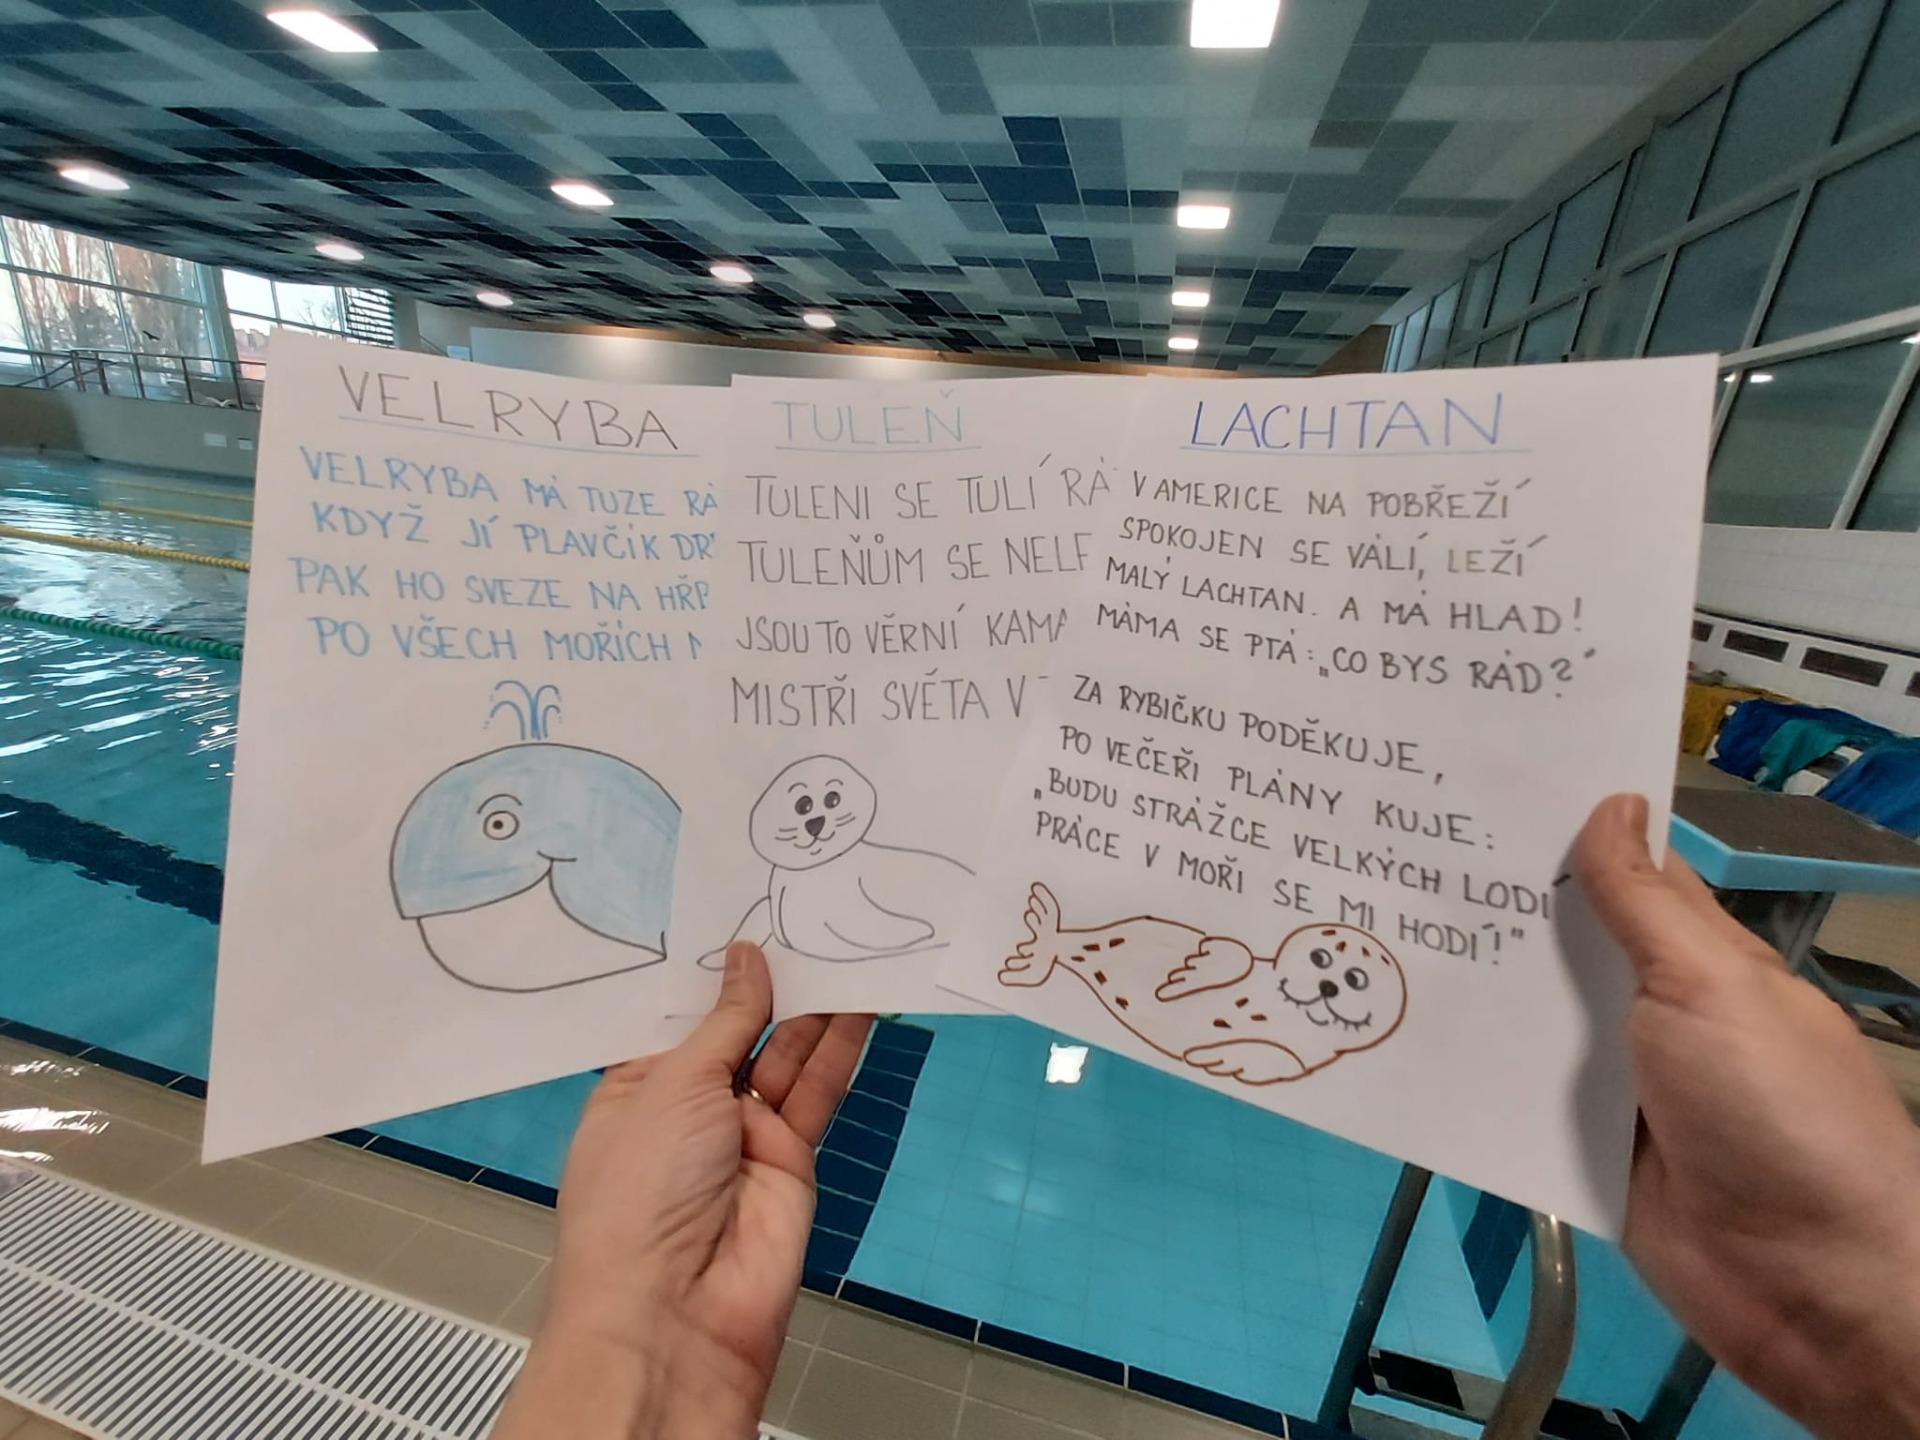 VELRYBA
VELRYBA MÁ TUZE
KDYŽ JÍ PLAVČÍK
PAK HO SVEZE NA
PO VŠECH MOŘÍCH
TULEŇ
TULENI SE TULÍ
TULEŇŮM SE
JSOU TO VĚRNÍ
MISTŘI SVĚTA V
LACHTAN
V AMERICE NA POBŘEŽÍ
SPOKOJEN SE VÁLÍ, LEŽÍ
MALÝ LACHTAN. A MÁ HLAD!
MÁMA SE PTÁ: „CO BYS RÁD?"
ZA RYBIČKU PODĚKUJE,
PO VEČEŘI PLÁNY KUJE:
„BUDU STRÁŽCE VELKÝCH LODÍ
PRÁCE V MOŘI SE MI HODÍ!"